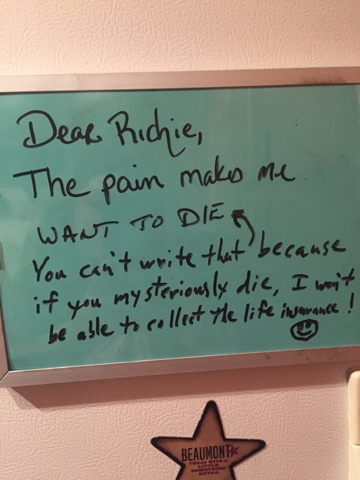 Dear Richie,
The pain makes me
WANT TO DIE
You can't write that because
if you mysteriously die, I won't
be able to collect the life insurance!
BEAUMONT
TEXAS WITH A
LITTLE
SOMETHING
EXTRA